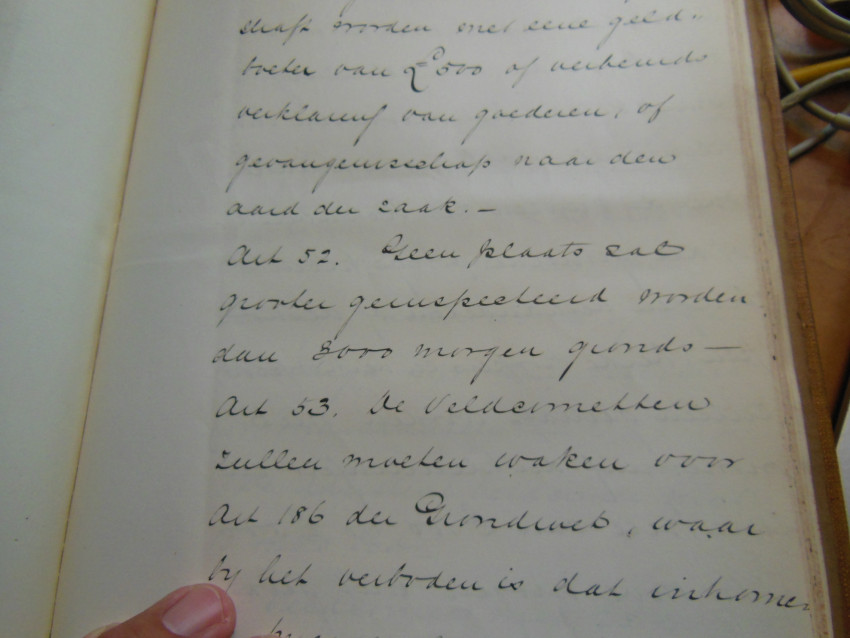 straft worden met eene geld-
boete van £500 of verbeurds
verklaring van goederen, of
gevangenisschap naar den
aard der zaak. —
Art 52. Geen plaats zal
grooter geinspecteerd worden
dan 3000 morgen gronds —
Art 53. De Veldcornetten
zullen moeten waken voor
Art 186 der Grondwet, waar
by het verboden is dat inkomen